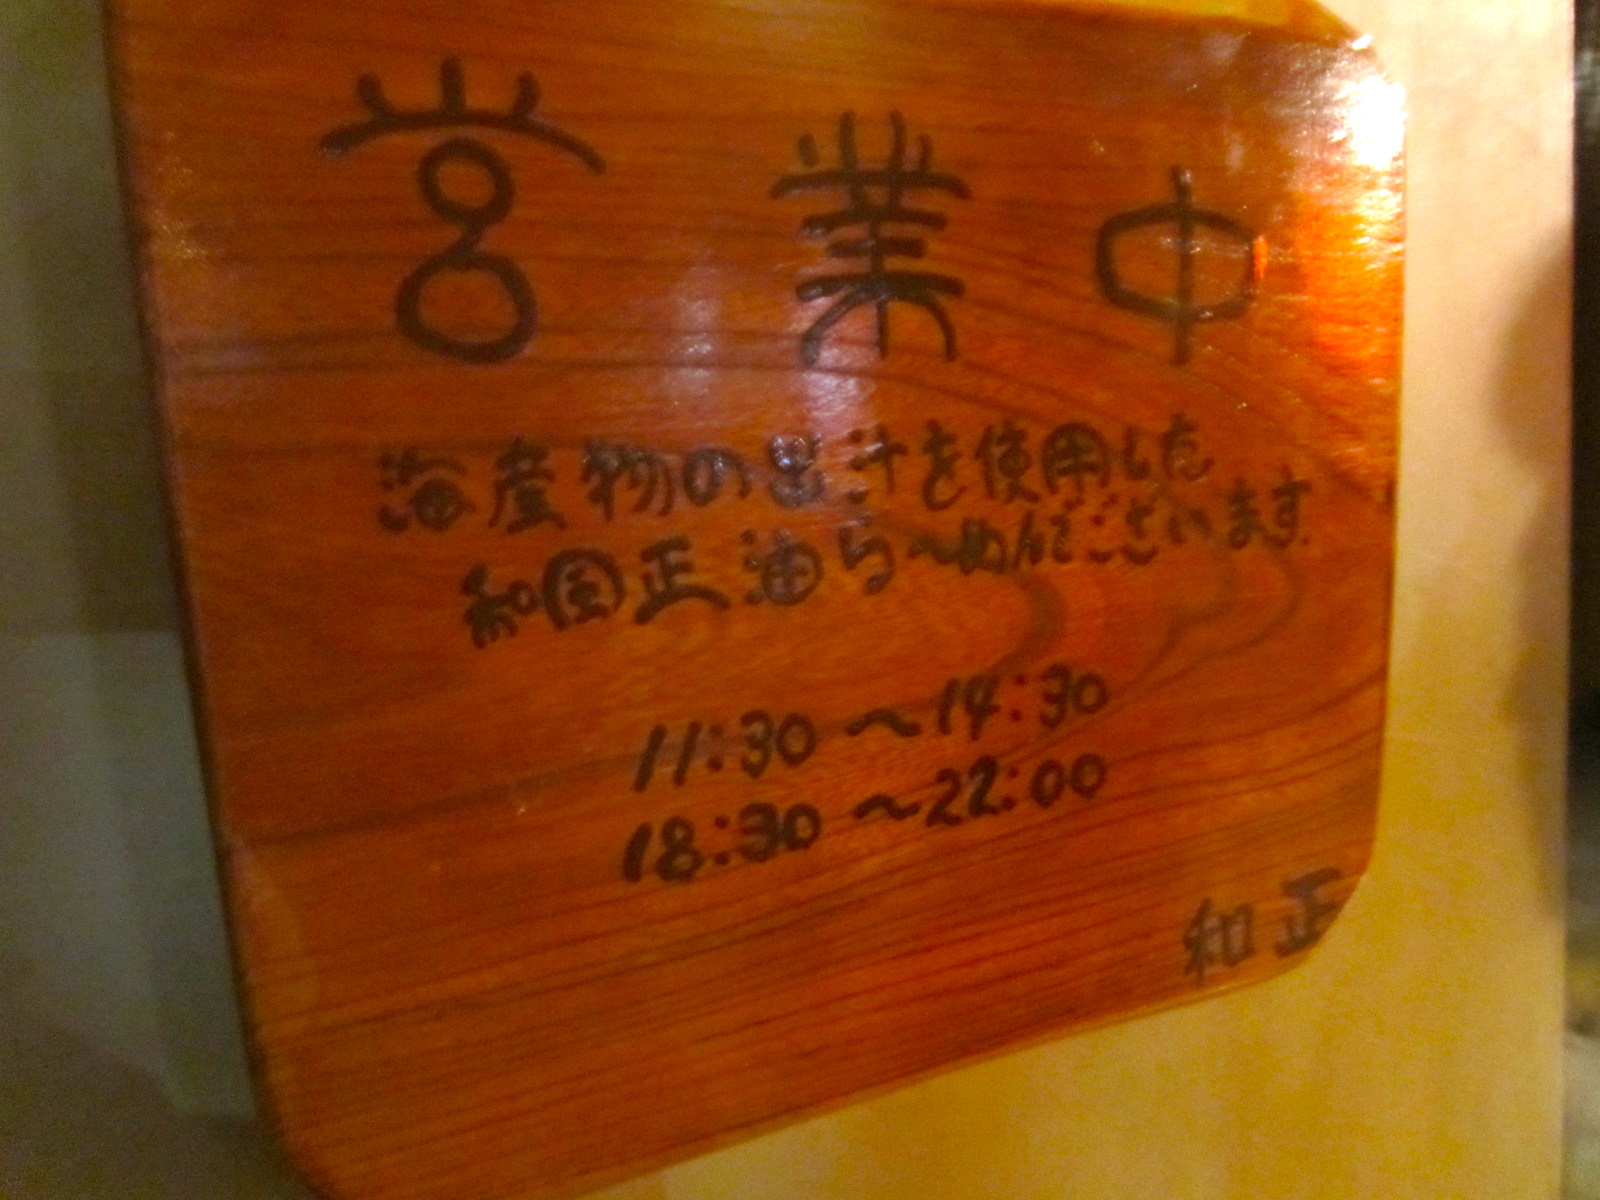 営業中
海産物の出汁を使用した
和風正油らーめんでございます。
11:30 〜 14:30
18:30 〜 22:00
和正